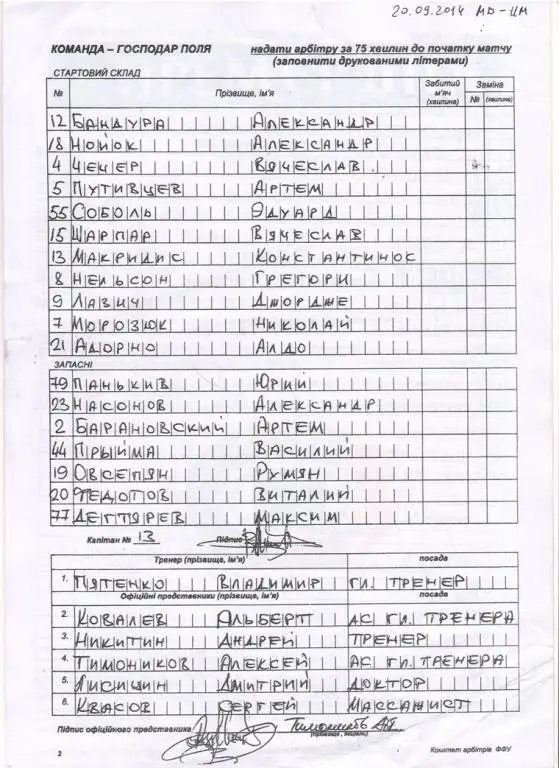 20.09.2014 МD-ИМ
КОМАНДА – ГОСПОДАР ПОЛЯ надати арбітру за 75 хвилин до початку матчу
(заповнити друкованими літерами)
СТАРТОВИЙ СКЛАД
№ Прізвище, ім'я Забитий м'яч (хвилина) Заміна
№ (хвилина)
12 БАНДУРА АЛЕКСАНДР
18 НОЙОК АЛЕКСАНДР
4 ЧЕЧЕР ВЯЧЕСЛАВ
5 ПУТИВЦЕВ АРТЕМ
55 СОБОЛЬ ЭДУАРД
15 ШАРПАР ВЯЧЕСЛАВ
13 МАКРИДИС КОНСТАНТИНОС
8 НЕЛЬСОН ГРЕГОРИ
9 ЛАЗИЧ ДЖОРДЖЕ
7 МОРОЗЮК НИКОЛАЙ
21 АДОРНО АЛДО
ЗАПАСНІ
79 ПАНЬКИВ ЮРИЙ
23 НАСОНОВ АЛЕКСАНДР
2 БАРАНОВСКИЙ АРТЕМ
44 ПРЫЙМА ВАСИЛИЙ
19 ОВСЕПЯН РУМЯН
20 ФЕДОТОВ ВИТАЛИЙ
77 ДЕГТЯРЕВ МАКСИМ
Капітан № 13 Підпис
Тренер (прізвище, ім'я) посада
1. ПЯТЕНКО ВЛАДИМИР ГЛ. ТРЕНЕР
Офіційні представники (прізвище, ім'я) посада
2. КОВАЛЕВ АЛЬБЕРТ АС ГЛ. ТРЕНЕРА
3. НИКИТИН АНДРЕЙ ТРЕНЕР
4. ТИМОНИКОВ АЛЕКСЕЙ АС ГЛ. ТРЕНЕРА
5. ЛИСИЦИН ДМИТРИЙ ДОКТОР
6. КВАСОВ СЕРГЕЙ МАССАЖИСТ
Підпис офіційного представника Тимоников
(прізвище, ініціали)
2 Комітет арбітрів ФФУ